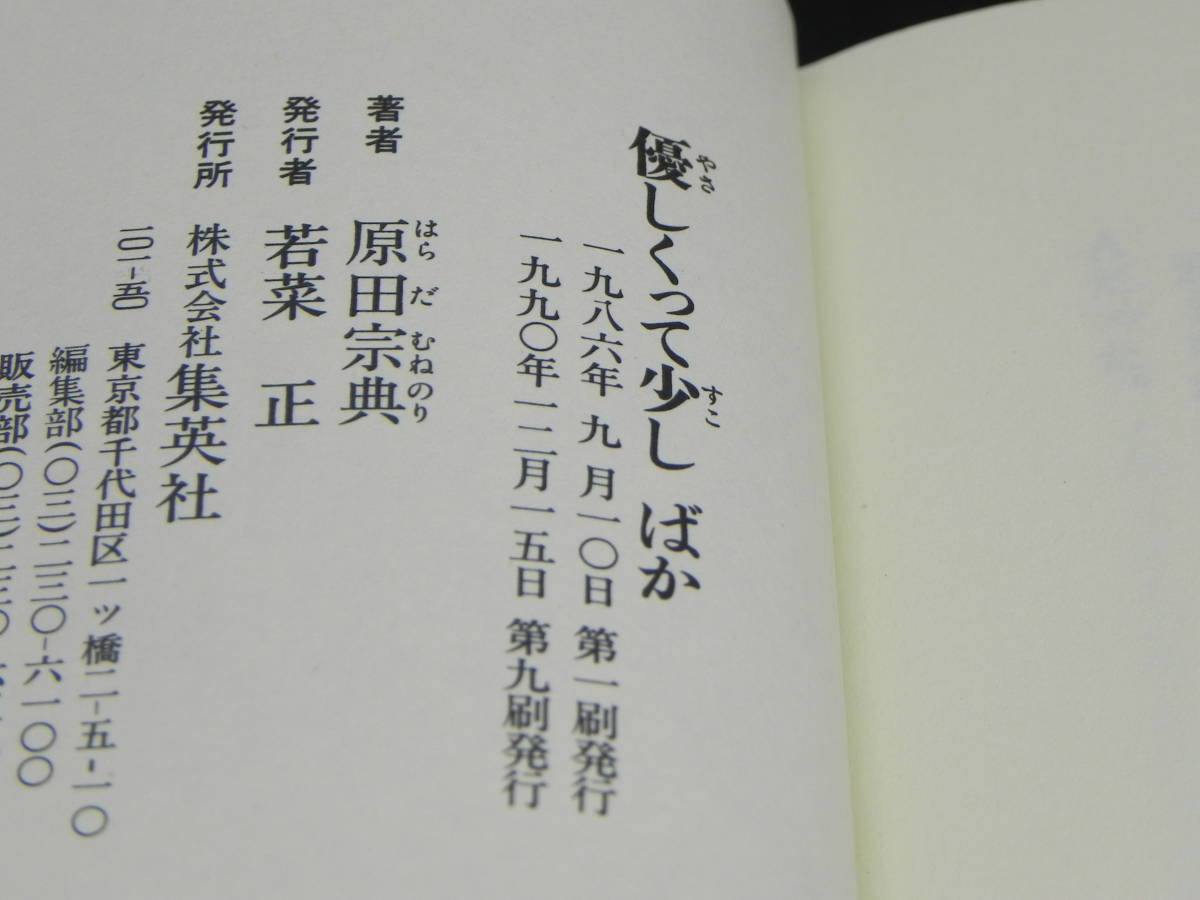 優しくって少し ばか
やさ
すこ
一九八六年 九 月一〇日 第一刷発行
一九九〇年一二月一五日 第九刷発行
著者 原田宗典
はら だ むねのり
発行者 若菜 正
発行所 株式会社集英社
一〇一-五〇 東京都千代田区一ッ橋二-五-一〇
編集部(〇三)二三〇-六一〇〇
販売部(〇三)二三〇-六